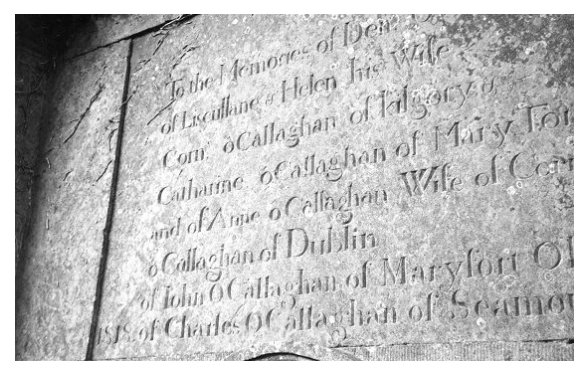 To the Memories of Den.
of Liscullane & Helen his Wife
Corn. óCallaghan of Kilgory &
Catharine óCallaghan of Mary
and of Anne óCallaghan Wife of Corn
óCallaghan of Dublin
of John OCallaghan of Maryfort O
1818. of Charles OCallaghan of Seamou